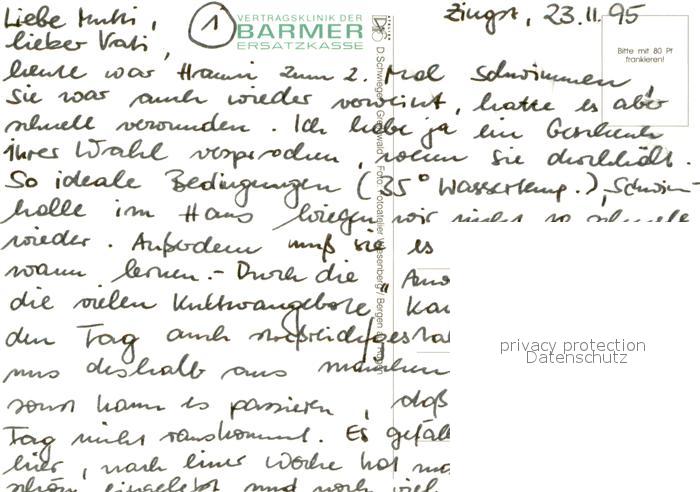 ① VERTRAGSKLINIK DER
BARMER
ERSATZKASSE
Zingst, 23.11.95
Bitte mit 80 Pf
frankieren!
Liebe Mutti,
lieber Vati,
heute war Hanni zum 2. Mal schwimmen
Sie war auch wieder verweint, hatte es aber
schnell verwunden. Ich habe ja ein Geschenk
ihrer Wahl versprochen, wenn sie durchhält.
So ideale Bedingungen (35° Wassertemp.), Schwimm-
halle im Haus kriegen wir nicht so schnell
wieder. Außerdem muß sie es
wann lernen. - Durch die
die vielen Kulturangebote
den Tag auch
uns deshalb aus manchen
sonst kann es passieren, daß
Tag nicht rauskommt. Es
hier, nach einer Woche hat
schön eingelebt und noch viel
privacy protection
Datenschutz